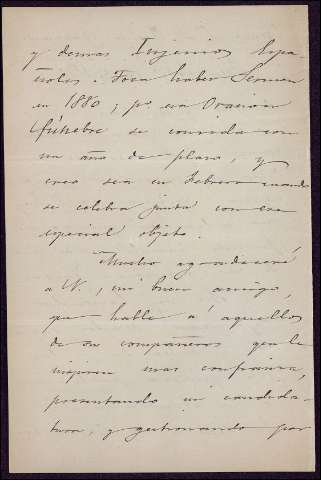 y demas Ingenios Espa-
ñoles. Toca haber Sermon
en 1880; pº esa Oracion
fúnebre se convida con
un año de plazo, y
creo sea en Febrero cuando
se celebra junta con ese
especial objeto.
Mucho agradeceré
a V., mi buen amigo,
que hable á aquellos
de sus compañeros que le
inspiren mas confianza,
presentando mi candida-
tura, y gestionando por